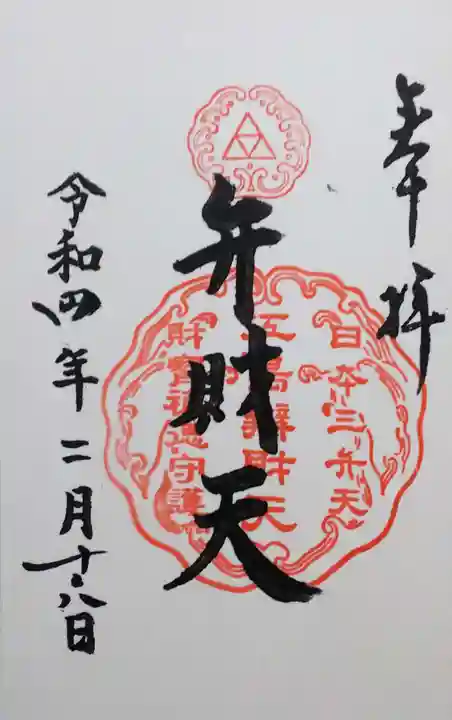 奉拝
日本三弁天
弁財天
財寶福徳守護
令和四年二月十八日